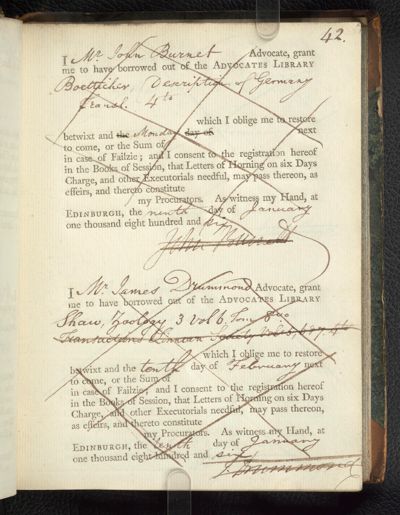 42.
I Mr John Burnet Advocate, grant
me to have borrowed out of the ADVOCATES LIBRARY
Boetticher, Description of Germany
4to
which I oblige me to restore
betwixt and the Monday day of next
to come, or the Sum of
in case of Failzie; and I consent to the registration hereof
in the Books of Session, that Letters of Horning on six Days
Charge, and other Executorials needful, may pass thereon, as
effeirs, and thereto constitute
my Procurators. As witness my Hand, at
EDINBURGH, the ninth day of January
one thousand eight hundred and six
John Burnett
I Mr. James Drummond Advocate, grant
me to have borrowed out of the ADVOCATES LIBRARY
Shaw, Zoology 3 vol 6. 8vo
Transactions Linnean Society Vol 5, 6 & 7 4to
which I oblige me to restore
betwixt and the tenth day of February next
to come, or the Sum of
in case of Failzie; and I consent to the registration hereof
in the Books of Session, that Letters of Horning on six Days
Charge, and other Executorials needful, may pass thereon,
as effeirs, and thereto constitute
my Procurators. As witness my Hand, at
EDINBURGH, the tenth day of January
one thousand eight hundred and six
J Drummond